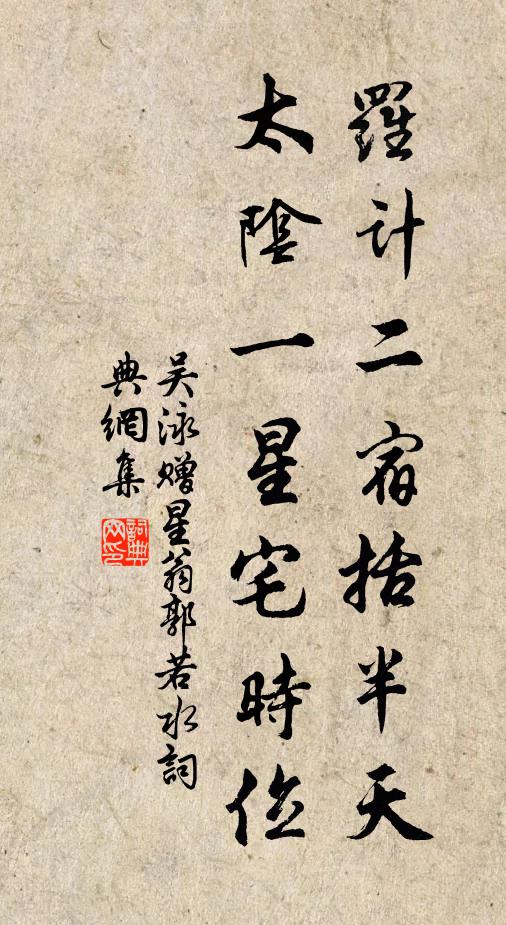 羅計二宿括半天
太陰一星宅時位
吳泳贈星翁郭若水詞
典網集
詞典網印